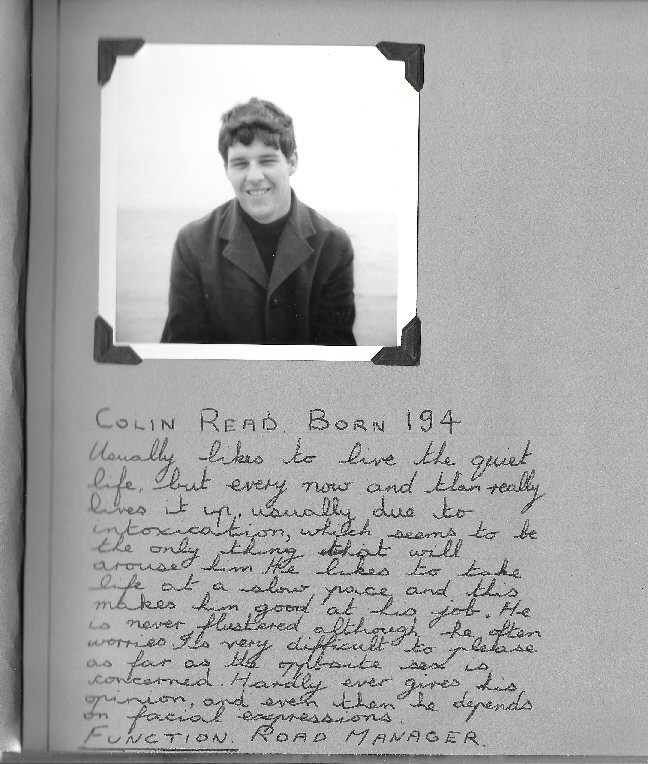 COLIN READ. BORN 194
Usually likes to live the quiet
life, but every now and than really
lives it up, usually due to
intoxication, which seems to be
the only thing that will
arouse him. He likes to take
life at a slow pace and this
makes him good at his job. He
is never flustered although he often
worries. Is very difficult to please
as far as the opposite sex is
concerned. Hardly ever gives his
opinion, and even then he depends
on facial expressions.
FUNCTION. ROAD MANAGER.